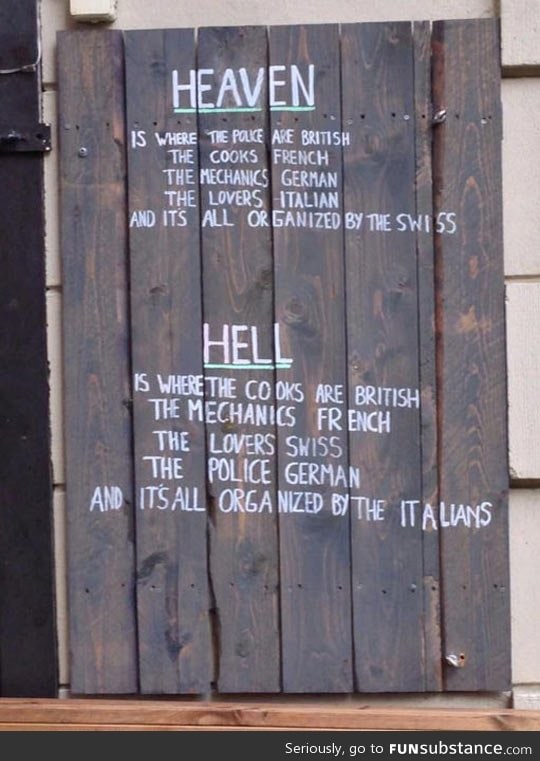 HEAVEN
IS WHERE THE POLICE ARE BRITISH
THE COOKS FRENCH
THE MECHANICS GERMAN
THE LOVERS ITALIAN
AND IT'S ALL ORGANIZED BY THE SWISS
HELL
IS WHERE THE COOKS ARE BRITISH
THE MECHANICS FRENCH
THE LOVERS SWISS
THE POLICE GERMAN
AND IT'S ALL ORGANIZED BY THE ITALIANS
Seriously, go to FUNsubstance.com